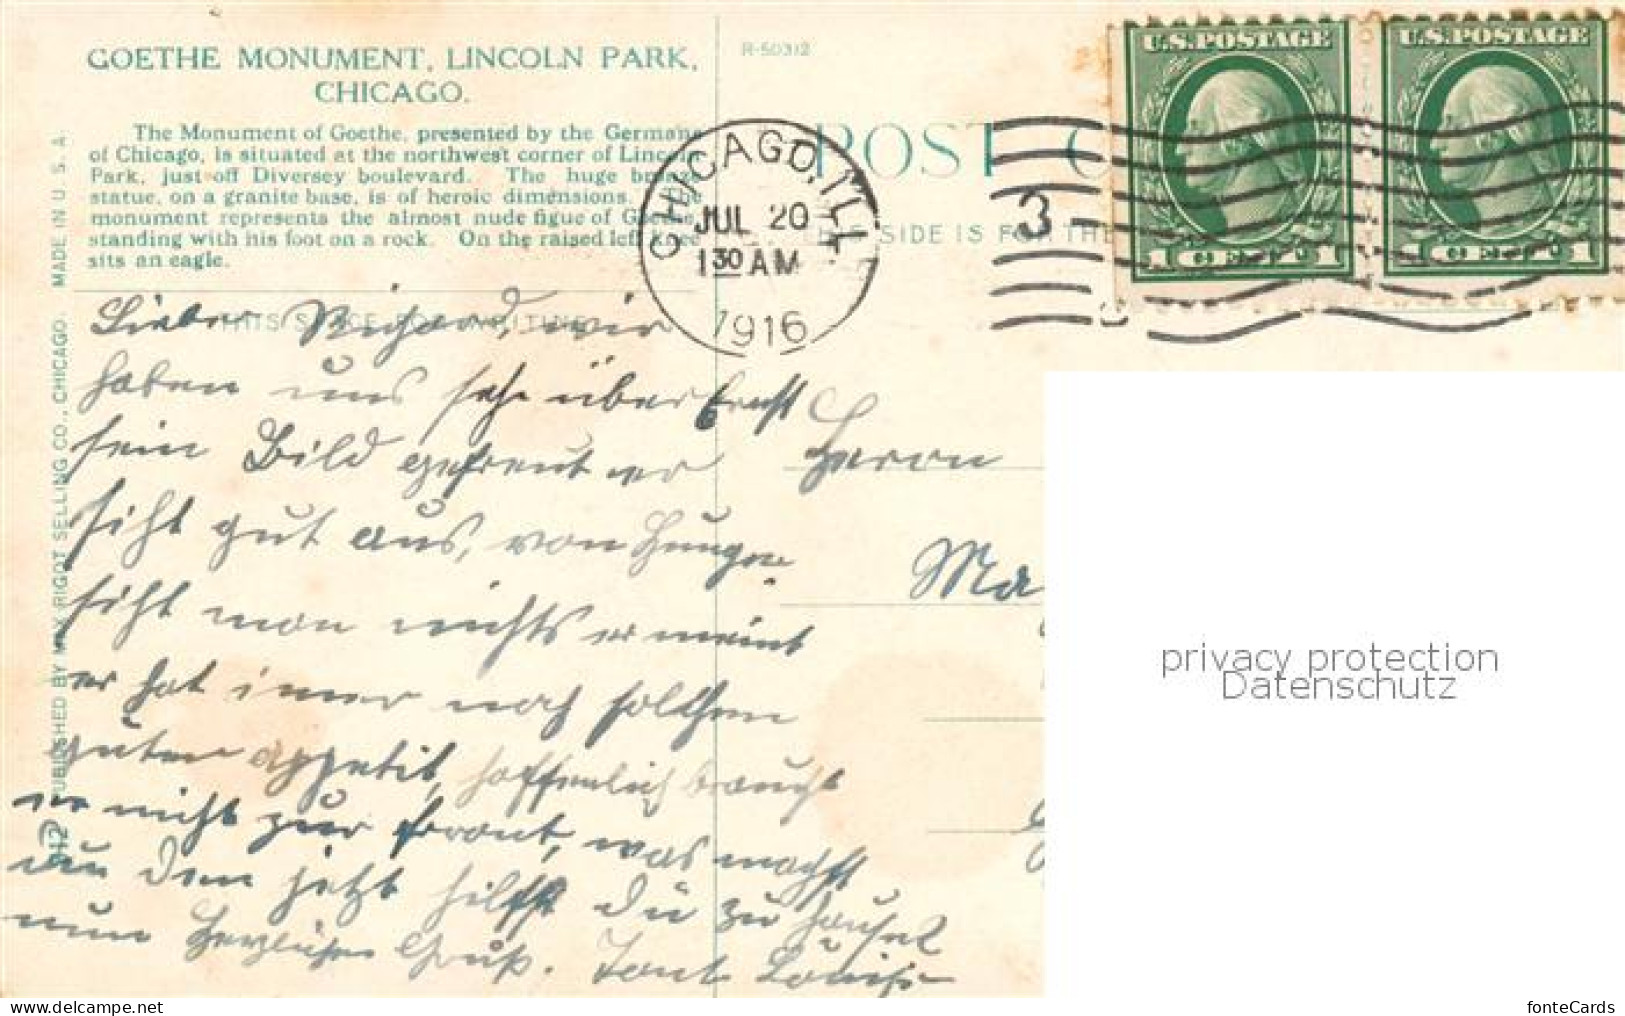 GOETHE MONUMENT, LINCOLN PARK,
CHICAGO.
The Monument of Goethe, presented by the Germans
of Chicago, is situated at the northwest corner of Lincoln
Park, just off Diversey boulevard. The huge bronze
statue, on a granite base, is of heroic dimensions. The
monument represents the almost nude figue of Goethe,
standing with his foot on a rock. On the raised left knee
sits an eagle.
THIS SPACE FOR WRITING
Lieber Richard, wir
haben uns sehr über Ernst
sein Bild gefreut er
siht gut aus, von Hunger
siht man nichts er meint
er hat imer noch solchen
guten appetit, hoffenlich braucht
er nicht zur Front, was machst
du den jetzt hilfst du zu Hause?
nun Herzlichen Gruß. Tant Louise
R-50312
POST C
THIS SIDE IS FOR THE
CHICAGO, ILL.
JUL 20
1 30 AM
1916
3
U.S. POSTAGE
1 CENT 1
U.S. POSTAGE
1 CENT 1
Herrn
Ma
privacy protection
Datenschutz
PUBLISHED BY MAX RIGOT SELLING CO., CHICAGO. MADE IN U. S. A.
fonteCards